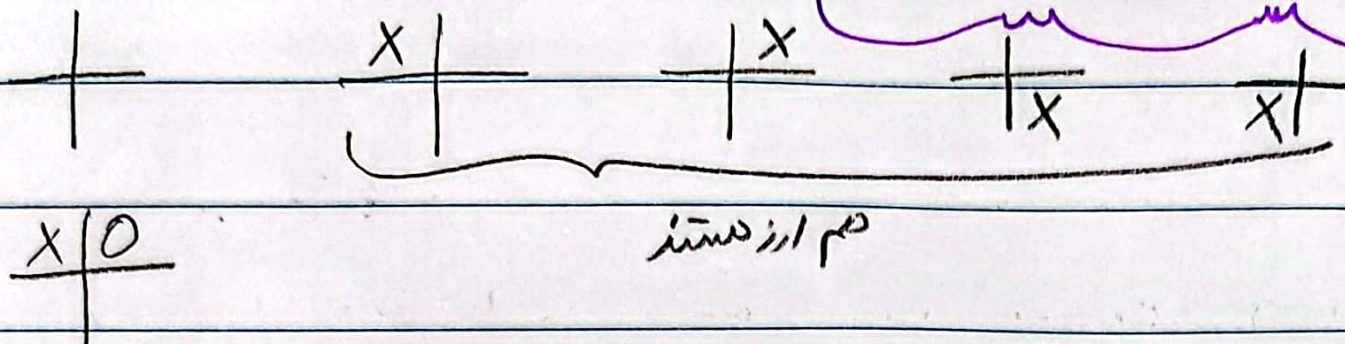 X X X X
هم ارز هستند
X O